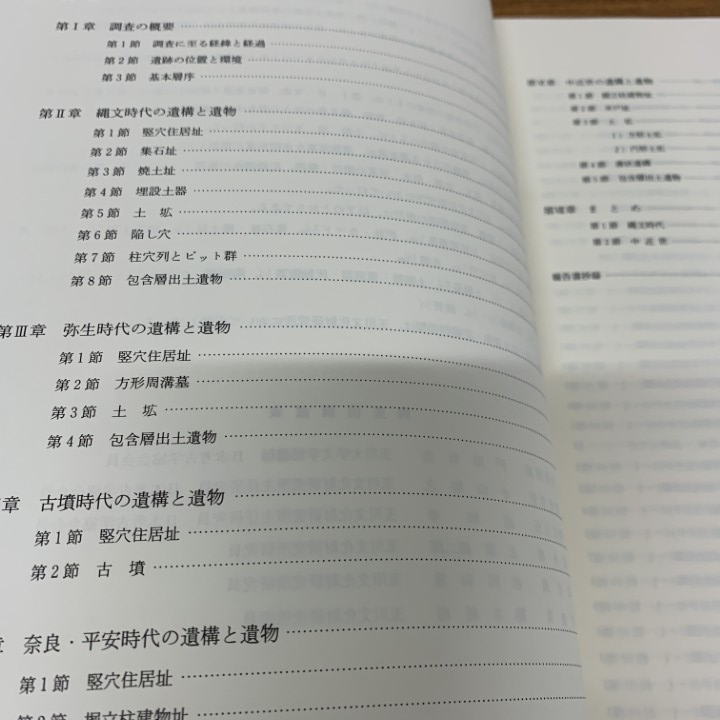 第Ⅰ章 調査の概要
第1節 調査に至る経緯と経過
第2節 遺跡の位置と環境
第3節 基本層序
第Ⅱ章 縄文時代の遺構と遺物
第1節 竪穴住居址
第2節 集石址
第3節 焼土址
第4節 埋設土器
第5節 土 坑
第6節 陥し穴
第7節 柱穴列とピット群
第8節 包含層出土遺物
第Ⅲ章 弥生時代の遺構と遺物
第1節 竪穴住居址
第2節 方形周溝墓
第3節 土 坑
第4節 包含層出土遺物
章 古墳時代の遺構と遺物
第1節 竪穴住居址
第2節 古 墳
章 奈良・平安時代の遺構と遺物
第1節 竪穴住居址
第2節 掘立柱建物址
中近世の遺構と遺物
第1節 掘立柱建物址
第2節 井戸址
第3節 土 坑
1) 方形土坑
2) 円形土坑
第4節 溝状遺構
第5節 包含層出土遺物
まとめ
第1節 縄文時代
第2節 中近世
報告書抄録